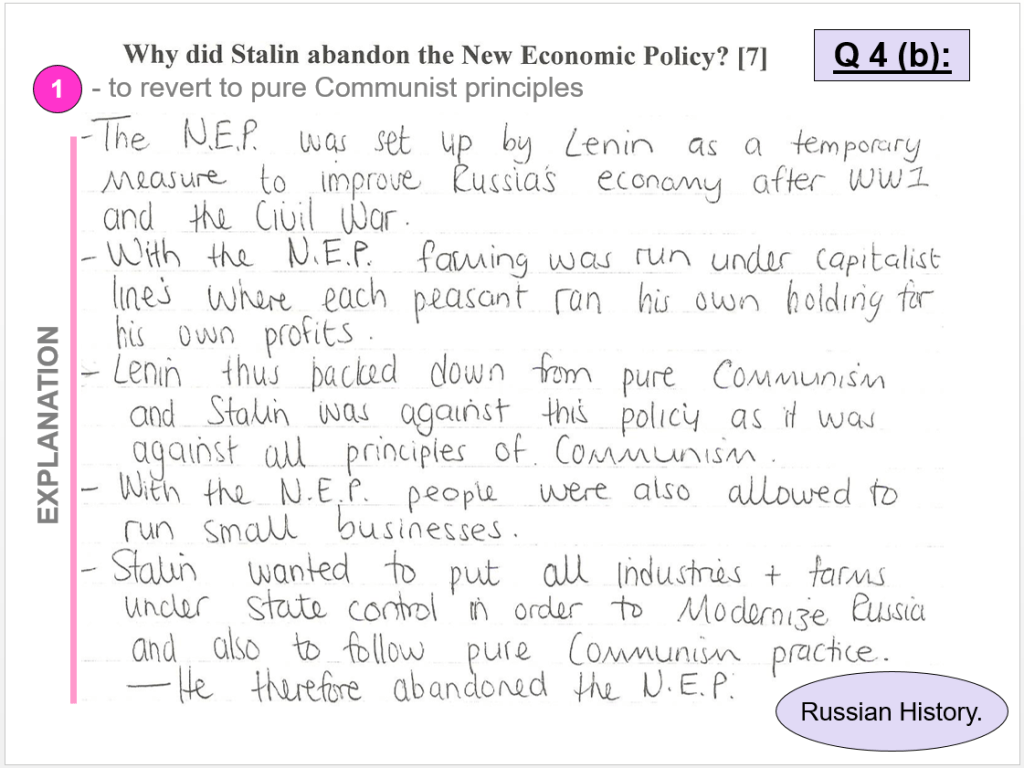 Why did Stalin abandon the New Economic Policy? [7]
Q 4 (b):
1 - to revert to pure Communist principles
- The N.E.P. was set up by Lenin as a temporary
measure to improve Russia's economy after WW1
and the Civil War.
- With the N.E.P. farming was run under capitalist
lines where each peasant ran his own holding for
his own profits.
- Lenin thus backed down from pure Communism
and Stalin was against this policy as it was
against all principles of Communism.
- With the N.E.P. people were also allowed to
run small businesses.
- Stalin wanted to put all industries + farms
under state control in order to Modernize Russia
and also to follow pure Communism practice.
— He therefore abandoned the N.E.P.
EXPLANATION
Russian History.